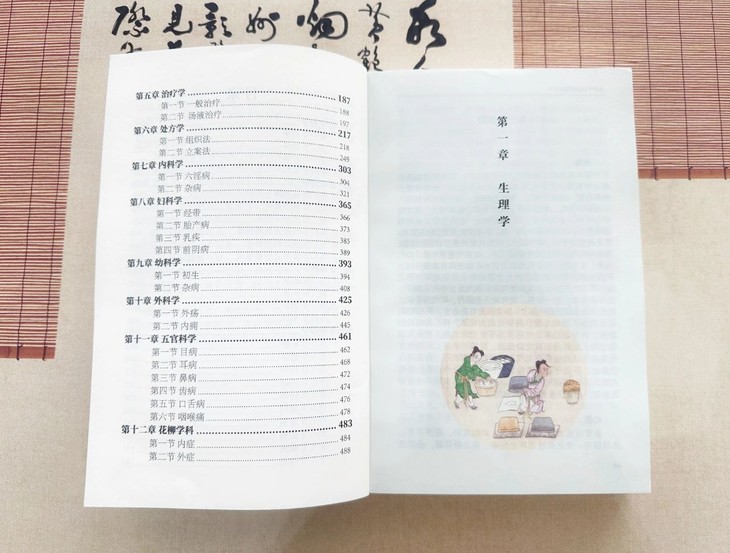 第五章 治疗学 187
第一节 一般治疗 188
第二节 汤液治疗 197
第六章 处方学 217
第一节 组织法 218
第二节 立案法 249
第七章 内科学 303
第一节 六淫病 304
第二节 杂病 321
第八章 妇科学 365
第一节 经带 366
第二节 胎产病 373
第三节 乳疾 385
第四节 前阴病 389
第九章 幼科学 393
第一节 初生 394
第二节 杂病 408
第十章 外科学 425
第一节 外疡 426
第二节 内痈 445
第十一章 五官科学 461
第一节 目病 462
第二节 耳病 468
第三节 鼻病 472
第四节 齿病 474
第五节 口舌病 476
第六节 咽喉痛 478
第十二章 花柳学科 483
第一节 内症 484
第二节 外症 488
第一章 生理学